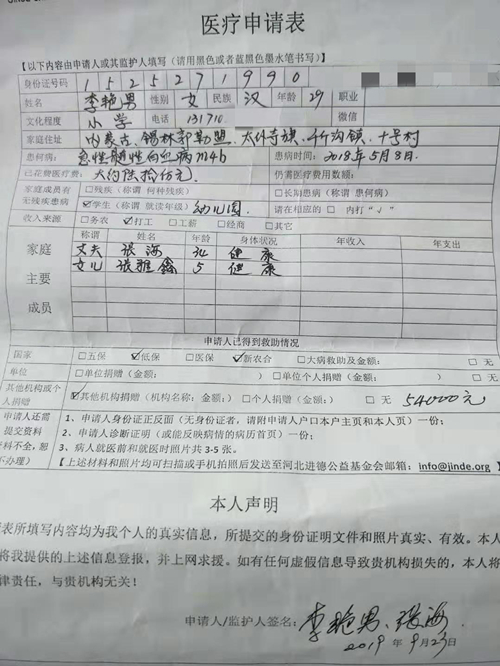 医疗申请表
【以下内容由申请人或其监护人填写（请用黑色或者蓝黑色墨水笔书写）】
身份证号码 1 5 2 5 2 7 1 9 9 0
姓名 李艳男 性别 女 民族 汉 年龄 29 职业
文化程度 小学 电话 131710 微信
家庭住址 内蒙古、锡林郭勒盟、太仆寺旗、千斤沟镇、十号村
患何病： 急性髓性白血病m4b 患病时间：2018年5月3日.
已花费医疗费： 大约陆拾伍元 仍需医疗费用数额：
家庭成员有无残疾患病 □残疾（称谓 何种残疾） □长期患病（称谓 患何病）
☑学生（称谓 就读年级）幼儿园 请在相应的 □ 内打“√”
收入来源 □务农 ☑打工 □工薪 □经商 □其它
家庭主要成员 称谓 姓名 年龄 身体状况 年收入 年支出
丈夫 张海 健康
女儿 张雅鑫 5 健康
申请人已得到救助情况
国家 □五保 ☑低保 □医保 ☑新农合 □大病救助及金额： □无
单位 □单位捐赠（金额： ） □单位个人捐赠（金额： ） □无
其他机构或个人捐赠 ☑其他机构捐赠（机构名称：金额：） □个人捐赠（金额： ） □无 54000元
申请人还需提交资料 1、申请人身份证正反面（无身份证者，请附申请人户口本户主页和本人页）一份；
2、申请人诊断证明（或能反映病情的病历首页）一份；
料不全，恕不办理） 3、病人就医前和就医时照片共 3-5 张。
【上述材料和照片均可扫描或手机拍照后发送至河北进德公益基金会邮箱：info@jinde.org】
本人声明
表所填写内容均为我个人的真实信息，所提交的身份证明文件和照片真实、有效。本人
将我提供的上述信息登报，并上网求援。如有任何虚假信息导致贵机构损失的，本人将
律责任，与贵机构无关！
申请人/监护人签名：李艳男、张海
2019 年 9月23日